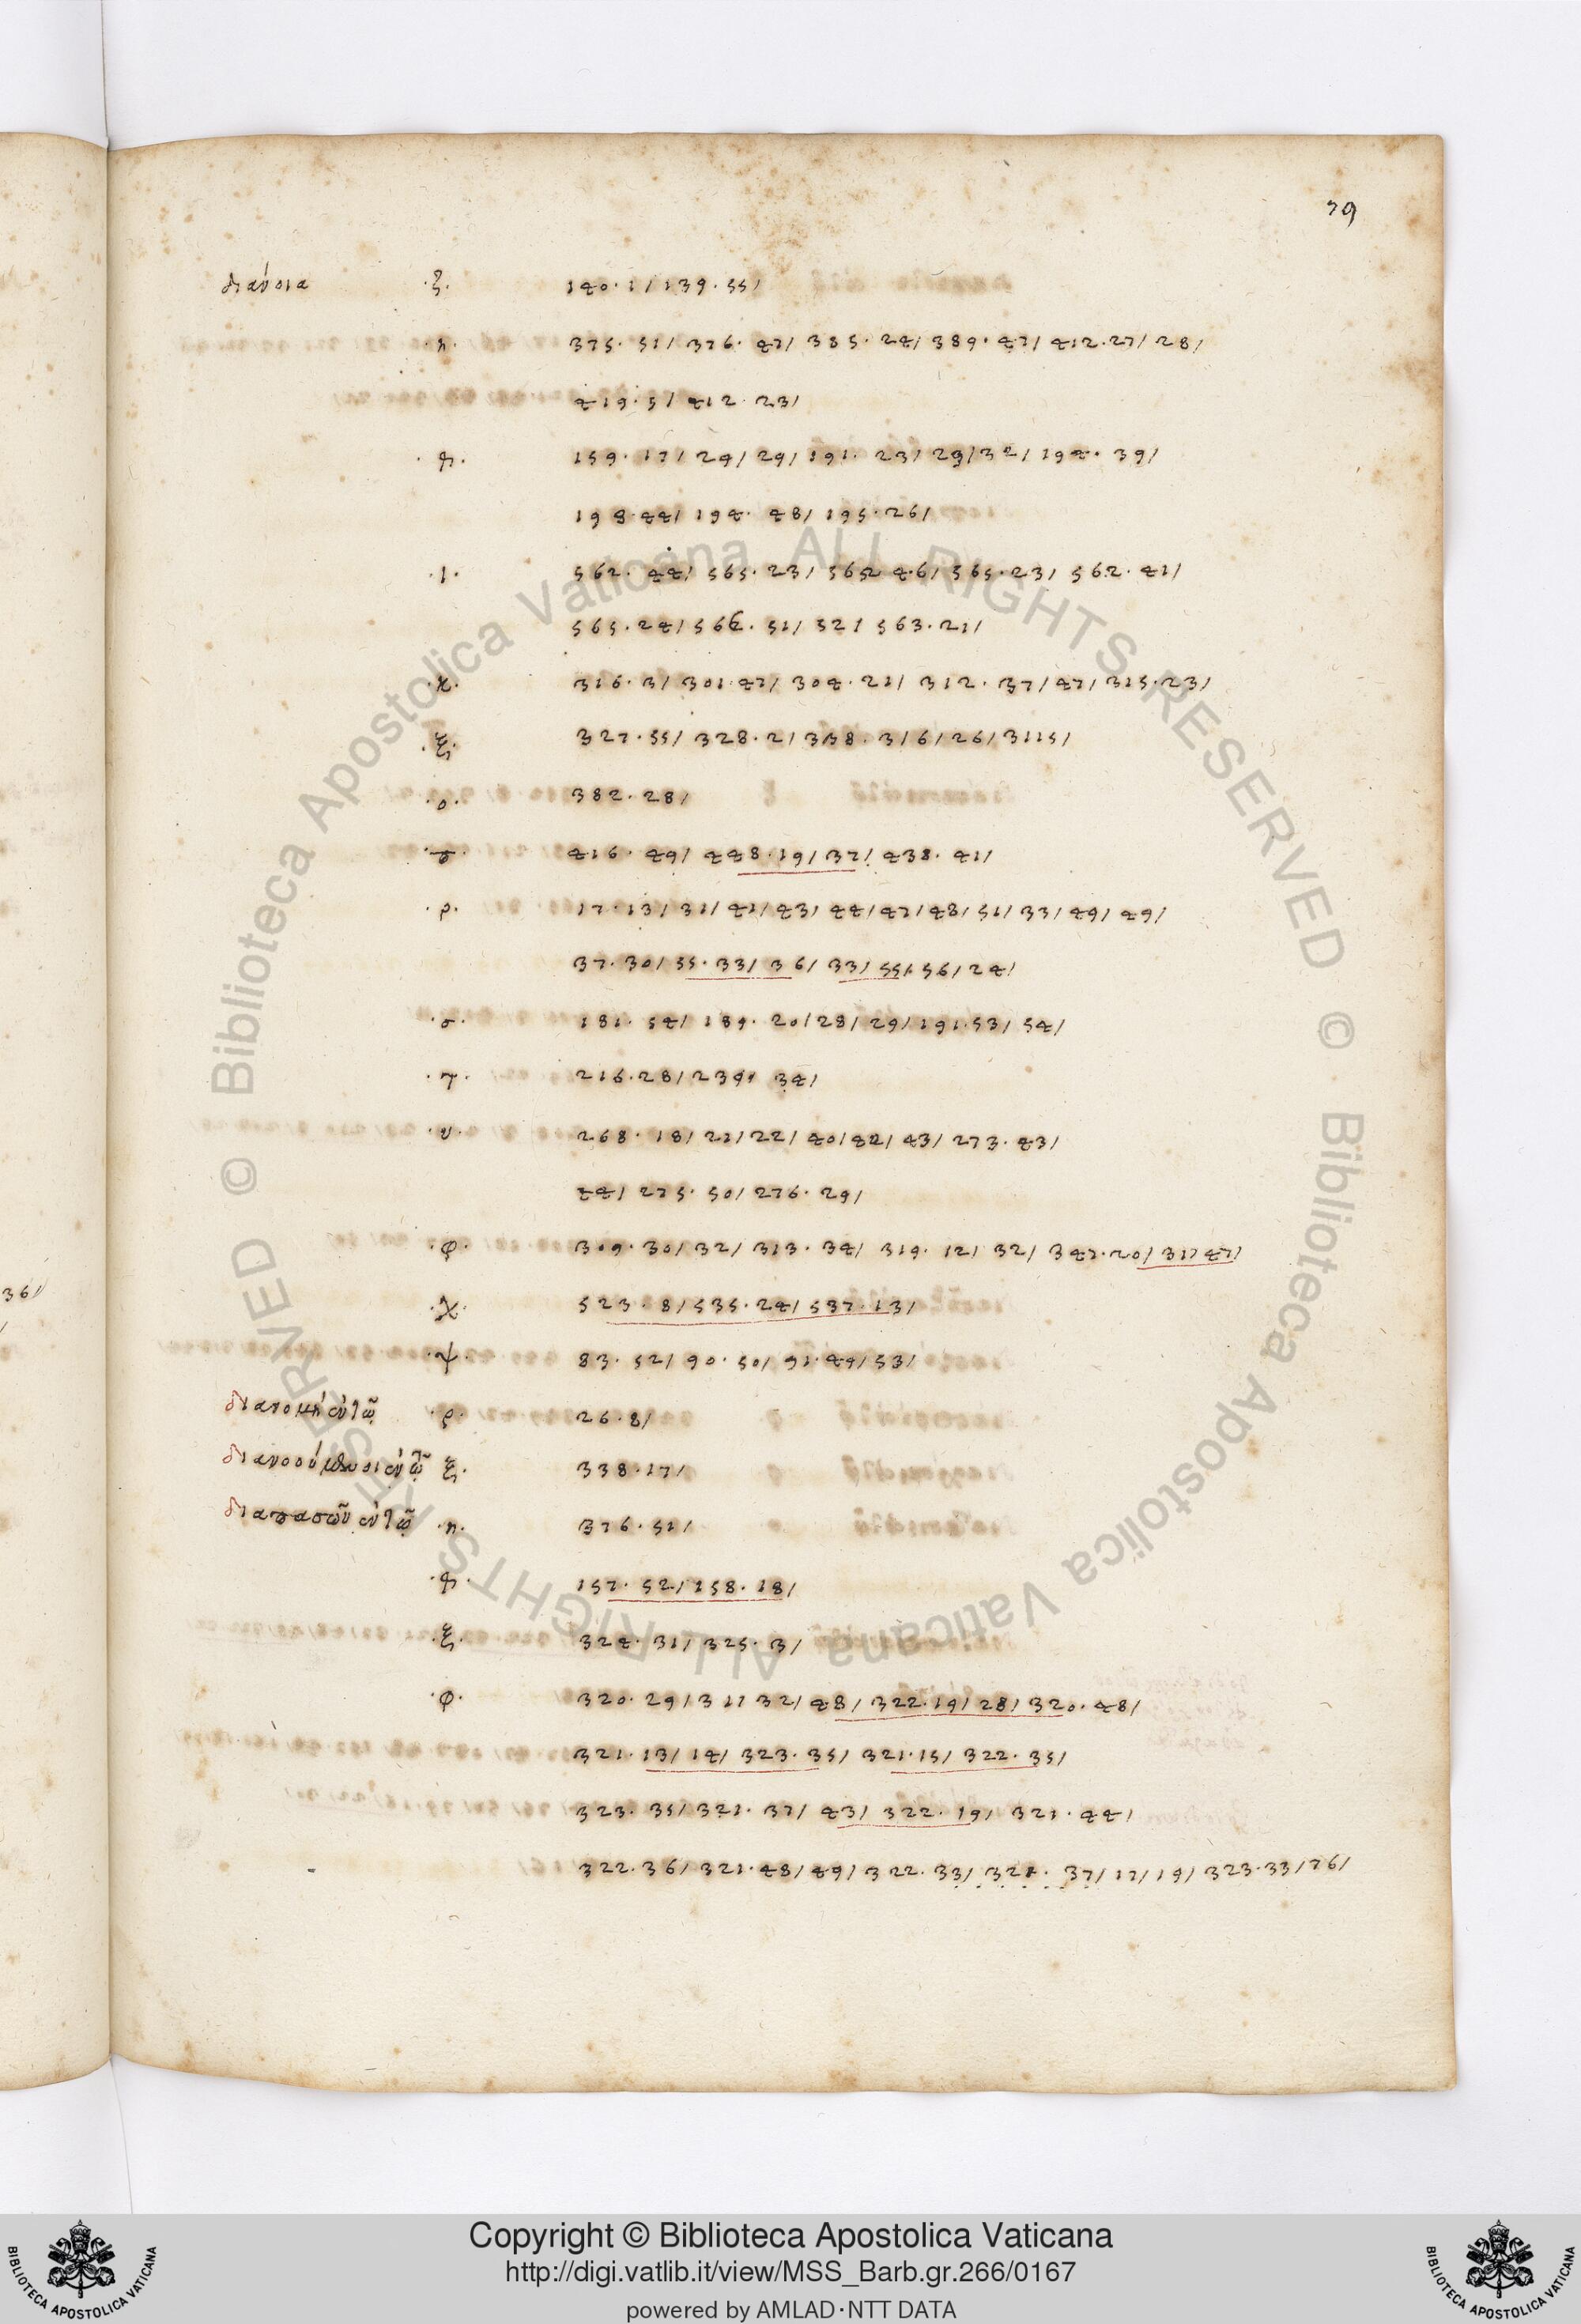 79
διάνοια ·ζ· 140·1/139·55/
·η· 375·51/376·47/385·24/389·47/412·27/28/
419·5/412·23/
·θ· 159·17/24/29/191·23/29/32/194·39/
198·44/194·48/195·26/
·ι· 562·44/565·23/562·46/565·23/562·41/
565·24/566·51/52/563·21/
·κ· 316·3/301·47/304·21/312·37/47/315·23/
·ξ· 327·55/328·2/338·3/6/26/31/15/
·ο· 382·28/
416·49/448·19/37/438·41/
·ρ· 17·13/31/41/43/44/47/48/51/33/49/49/
37·30/55·33/36/33/55/56/24/
·σ· 181·54/189·20/28/29/191·53/54/
·τ· 216·28/239· 34/
·υ· 268·18/21/22/40/42/43/273·43/
44/275·50/276·29/
·φ· 309·30/32/313·34/319·12/32/347·20/31/47/
·χ· 523·8/535·24/537·13/
·ψ· 83·52/90·50/91·49/53/
διανομὴ ἐν τῶ ·ρ· 26·8/
ξ· 338·17/
διαπασῶν ἐν τῶ ·η· 376·51/
·θ· 157·52/158·18/
·ξ· 324·31/325·3/
·φ· 320·29/31/32/48/322·19/28/320·48/
321·13/14/323·35/321·15/322·35/
323·35/321·37/43/322·19/321·44/
322·36/321·48/49/322·33/321·37/17/19/323·33/76/
36/
© Biblioteca Apostolica Vaticana ALL RIGHTS RESERVED © Biblioteca Apostolica Vaticana ALL RIGHTS RESERVED
Copyright © Biblioteca Apostolica Vaticana
http://digi.vatlib.it/view/MSS_Barb.gr.266/0167
powered by AMLAD·NTT DATA
BIBLIOTECA APOSTOLICA VATICANA
BIBLIOTECA APOSTOLICA VATICANA